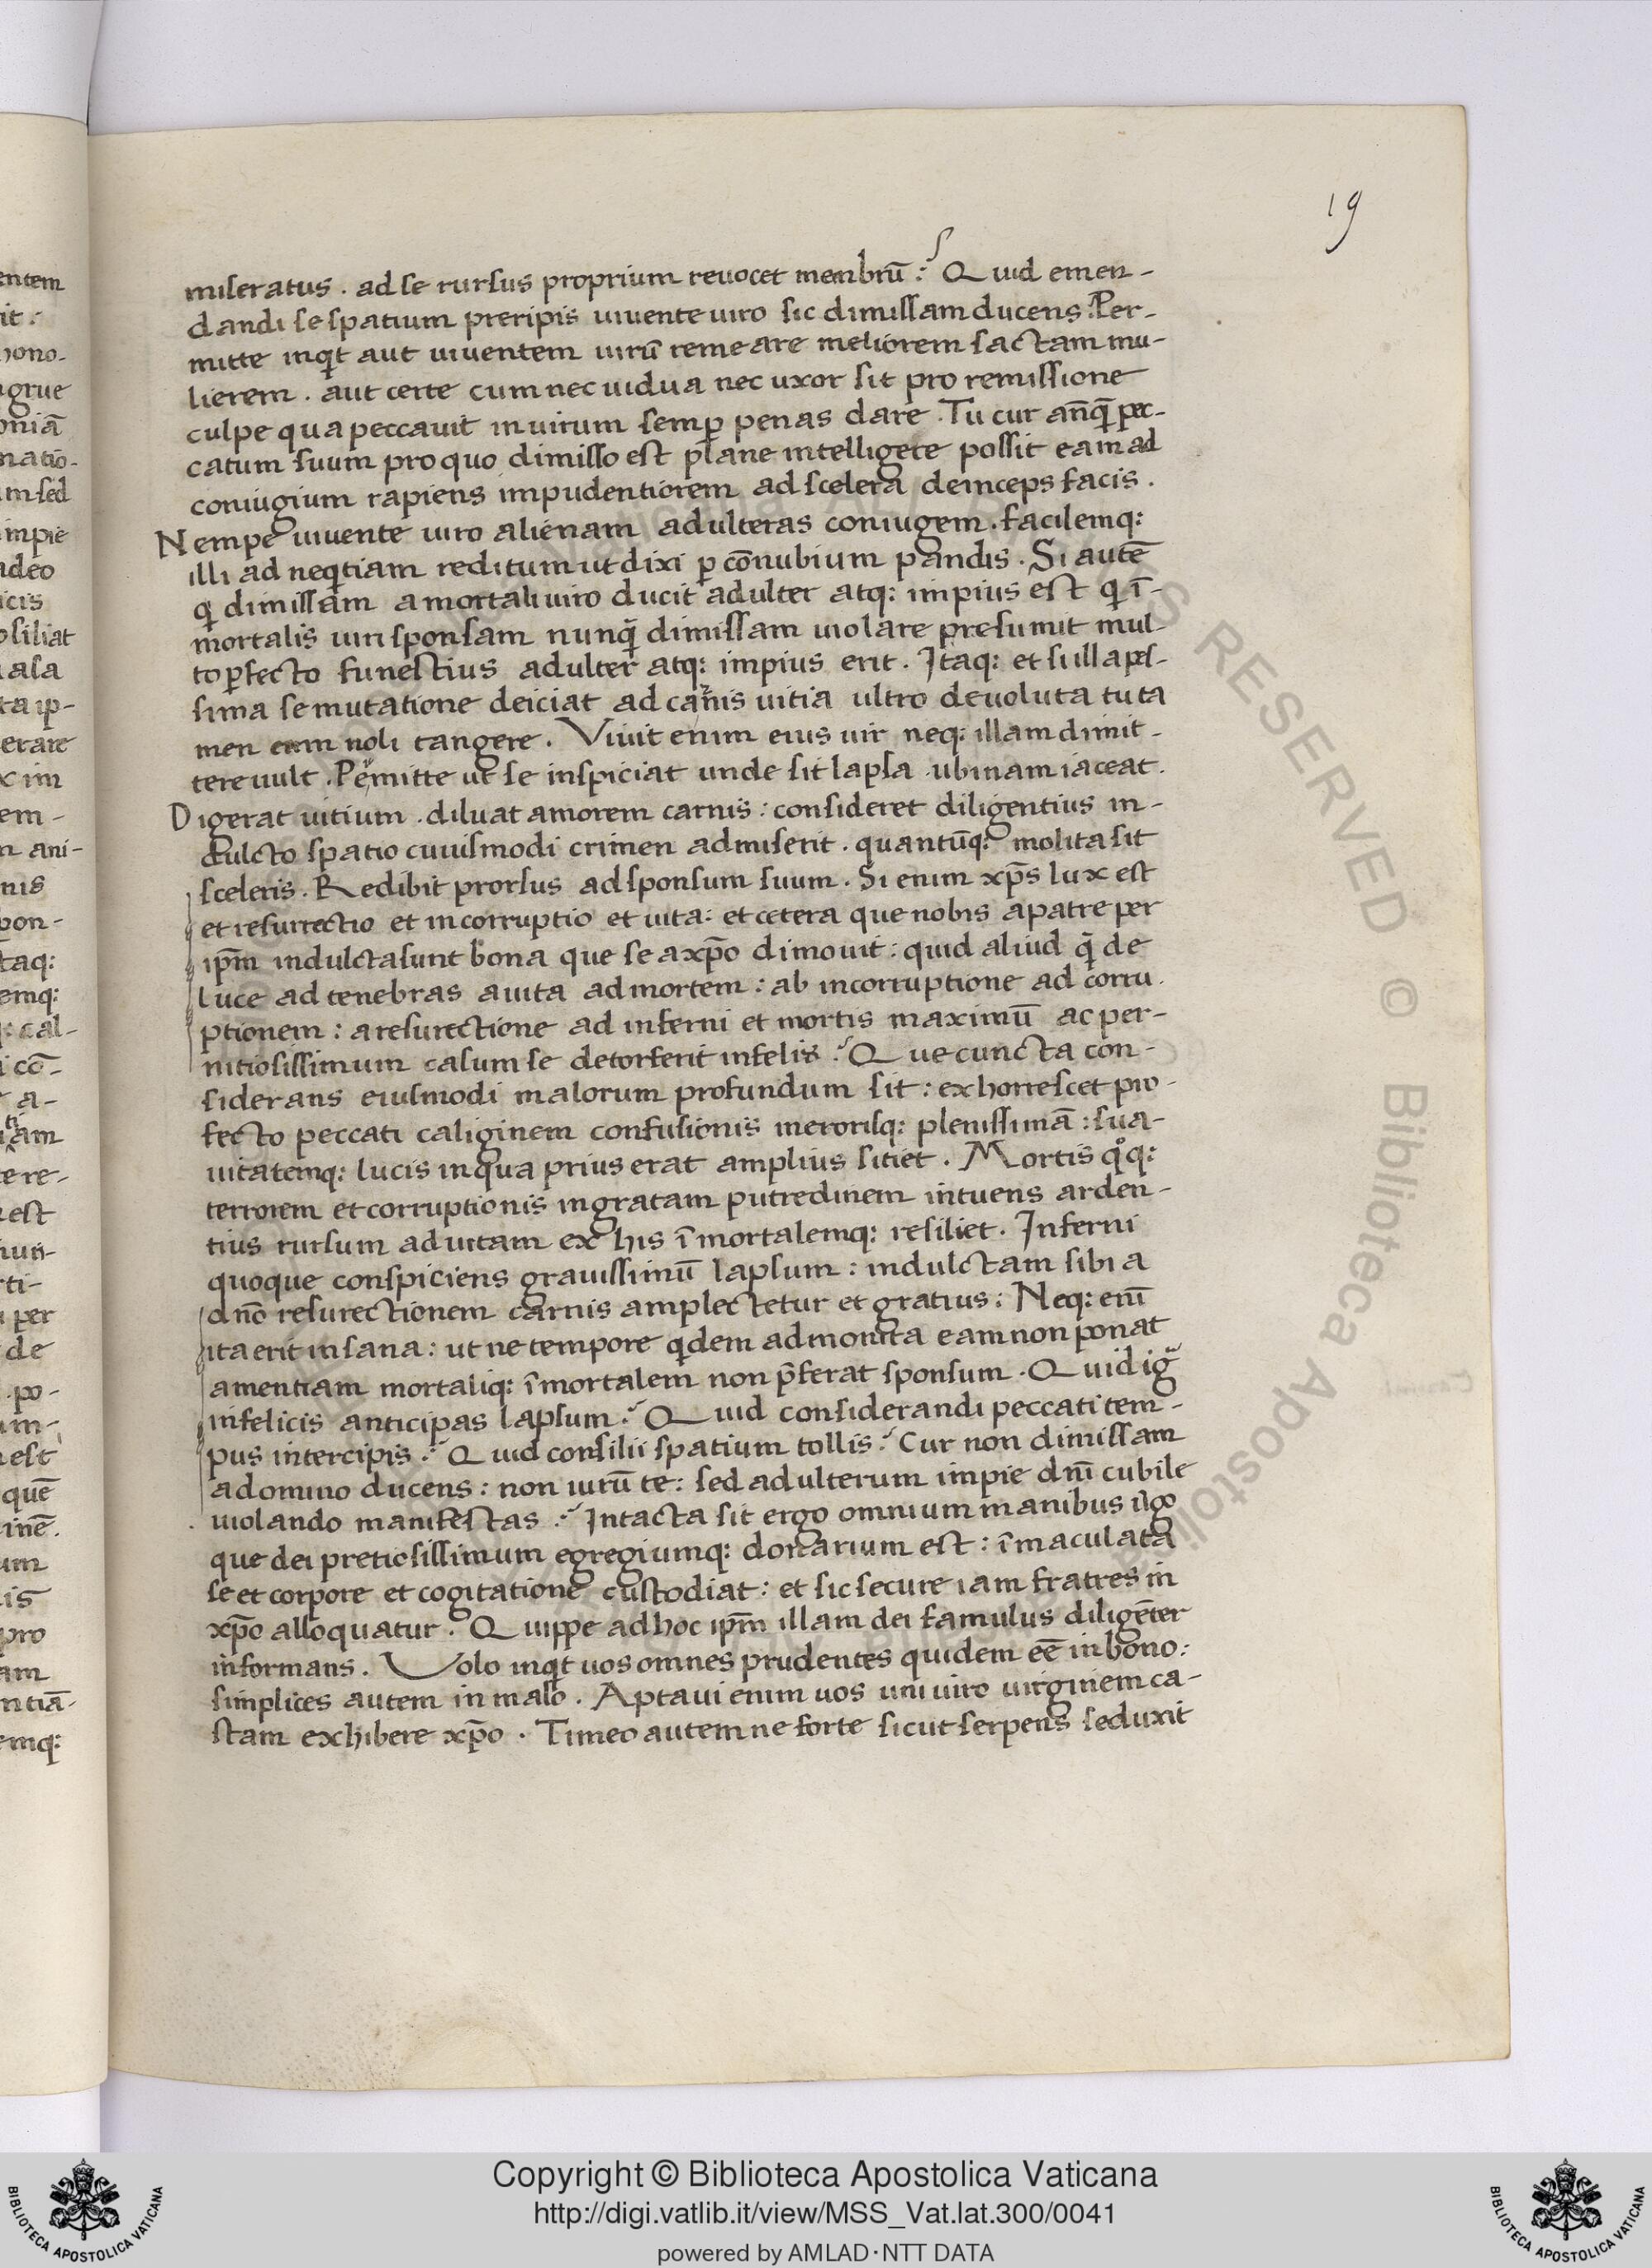 19
miseratus . ad se rursus proprium reuocet membrū ? Quid emen-
dandi se spatium preripis uiuente uiro sic dimissam ducens ? Per-
mitte inq̇t aut uiuentem uirū remeare meliorem factam mu-
lierem . aut certe cum nec uidua nec uxor sit pro remissione
culpe qua peccauit in uirum semp̱ penas dare . Tu cur anq̄ pec-
catum suum pro quo dimisso est plane intelligere possit eam ad
coniugium rapiens impudentiorem ad scelera deinceps facis .
Nempe uiuente uiro alienam adulteras coniugem . facilemq:
illi ad neq̇tiam reditum ut dixi p̱ cōnubium pandis . Si autē
q̇ dimissam a mortali uiro ducit adulter atq: impius est q̇ ī-
mortalis uiri sponsam nunq̄ dimissam uiolare presumit mul-
to p̱fecto funestius adulter atq: impius erit . Itaq: et si illa pes-
sima se mutatione deiciat ad carnis uitia ultro deuoluta tu ta
men eam noli tangere . Viuit enim eius uir neq: illam dimit-
tere uult . Permitte ut se inspiciat unde sit lapsa . ubinam iaceat .
Digerat uitium . diluat amorem carnis : consideret diligentius in-
dulcto spatio cuiusmodi crimen admiserit . quantūq: molita sit
sceleris . Redibit prorsus ad sponsum suum . Si enim xp̄s lux est
et resurrectio et incorruptio et uita : et cetera que nobis a patre per
ip̄m indulcta sunt bona que se a xp̄o dimouit : quid aliud q̄ de
luce ad tenebras a uita ad mortem : ab incorruptione ad corru .
ptionem : a resurectione ad inferni et mortis maximū ac per-
nitiosissimum casum se detorserit infelix ? Que cuncta con-
siderans eiusmodi malorum profundum sit : exhorrescet pro-
fecto peccati caliginem confusionis merorisq: plenissimā : sua-
uitatemq: lucis in qua prius erat amplius sitiet . Mortis q̊q:
terrorem et corruptionis ingratam putredinem intuens arden-
tius rursum ad uitam ex his īmortalemq: resiliet . Inferni
quoque conspiciens grauissimū lapsum : indulctam sibi a
dn̄o resurectionem carnis amplectetur et gratius : Neq: enī
ita erit insana : ut ne tempore q̇dem admonita eam non ponat
amentiam mortaliq: īmortalem non p̄ferat sponsum . Quid ig̃
infelicis anticipas lapsum ? Quid considerandi peccati tem-
pus intercipis ? Quid consilii spatium tollis ? Cur non dimissam
a domino ducens : non uirū te : sed adulterum impie dn̄i cubile
uiolando manifestas ? Intacta sit ergo omnium manibus u̇go
que dei pretiosissimum egregiumq: donarium est : īmaculata
se et corpore et cogitatione custodiat : et sic secure iam fratres in
xp̄o alloquatur . Quippe ad hoc ip̄m illam dei famulus diligēter
informans . Volo inq̇t uos omnes prudentes quidem eē in bono :
simplices autem in malo . Aptaui enim uos uni uiro uirginem ca-
stam exhibere xp̄o . Timeo autem ne forte sicut serpens seduxit
Copyright © Biblioteca Apostolica Vaticana
http://digi.vatlib.it/view/MSS_Vat.lat.300/0041
powered by AMLAD·NTT DATA
BIBLIOTECA APOSTOLICA VATICANA
BIBLIOTECA APOSTOLICA VATICANA